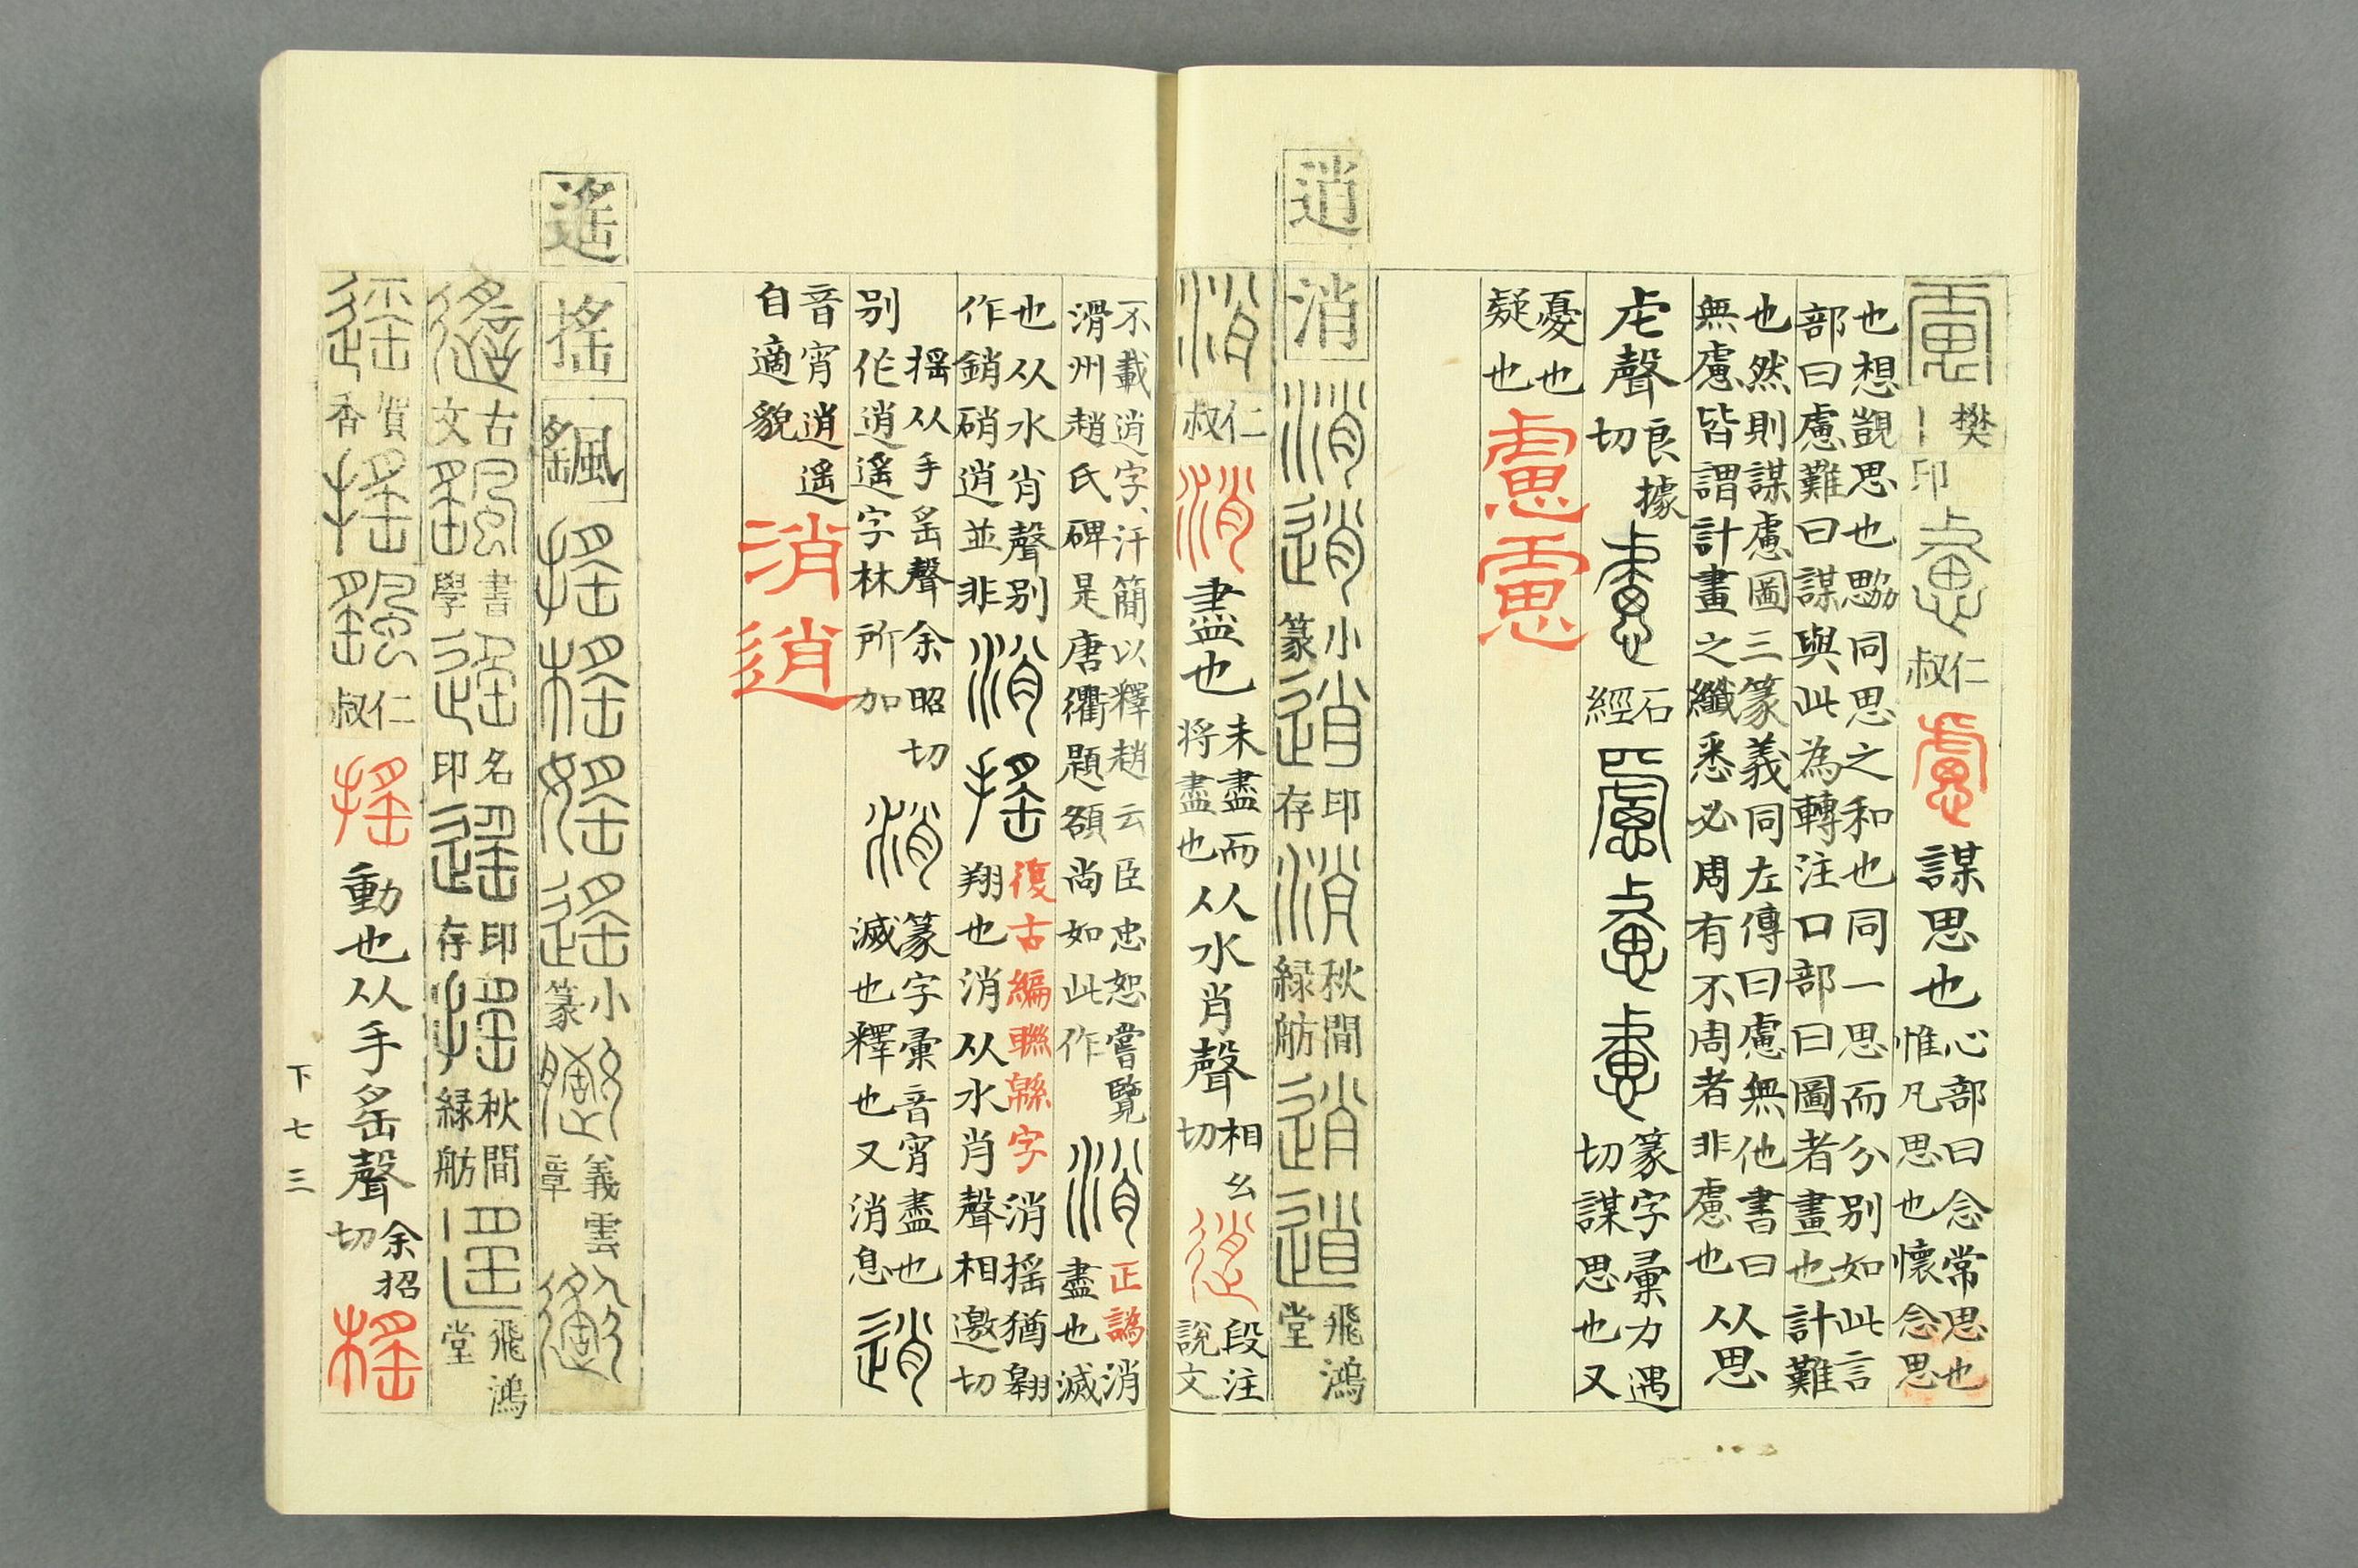 慮 樊｜印 慮 仁叔 慮 謀思也 心部曰念常思也惟凡思也懷念思
也想覬思也勰同思之和也同一思而分别如此言
部曰慮難曰謀與此為轉注口部曰圖者畫也計難
也然則謀慮圖三篆義同左傳曰慮無他書曰
無慮皆謂計畫之纖悉必周有不周者非慮也 从思
虍聲 良據切 慮 石經 慮 慮 慮 篆字彙力遇切謀思也又
憂也疑也 慮 慮
逍 消 消 逍 小篆 逍 印存 消 秋間緑舫 逍 逍 飛鴻堂
消 仁叔 消 盡也 未盡而将盡也 从水肖聲 相幺切 逍 段注說文
不載逍字汗簡以釋趙云臣忠恕嘗覽
滑州趙氏碑是唐衢題額尚如此作 消 正譌 消盡也滅
也从水肖聲别作銷硝逍並非 消 搖 復古編聯緜字 消揺猶翱翔也消从水肖聲相邀切
揺从手䍃聲余昭切别作逍遥字林所加 消 篆字彙音宵盡也滅也釋也又消息 逍
音宵逍遥自適貌 消 逍
遙 搖 颻 搖 榣 媱 遙 小篆 義雲章
遙 古文 颻 書學 遙 名印 遙 印存 搖 秋間緑舫 遙 飛鴻堂
遙 賀香 搖 颻 仁叔 搖 動也从手䍃聲 余招切 榣
下七三